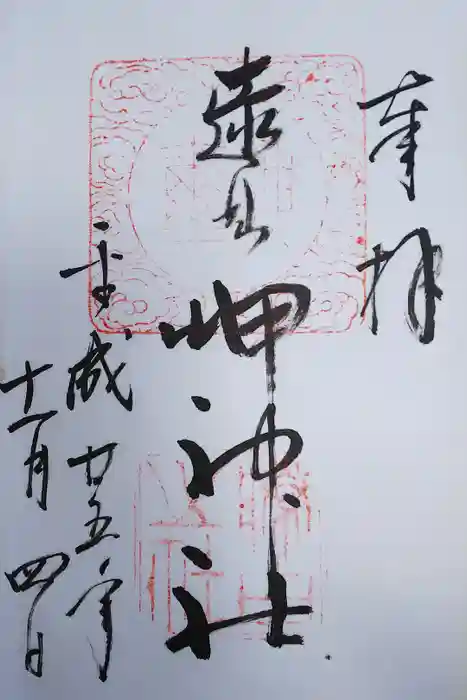 奉拝
遠見岬神社
平成廿五年
十一月四日